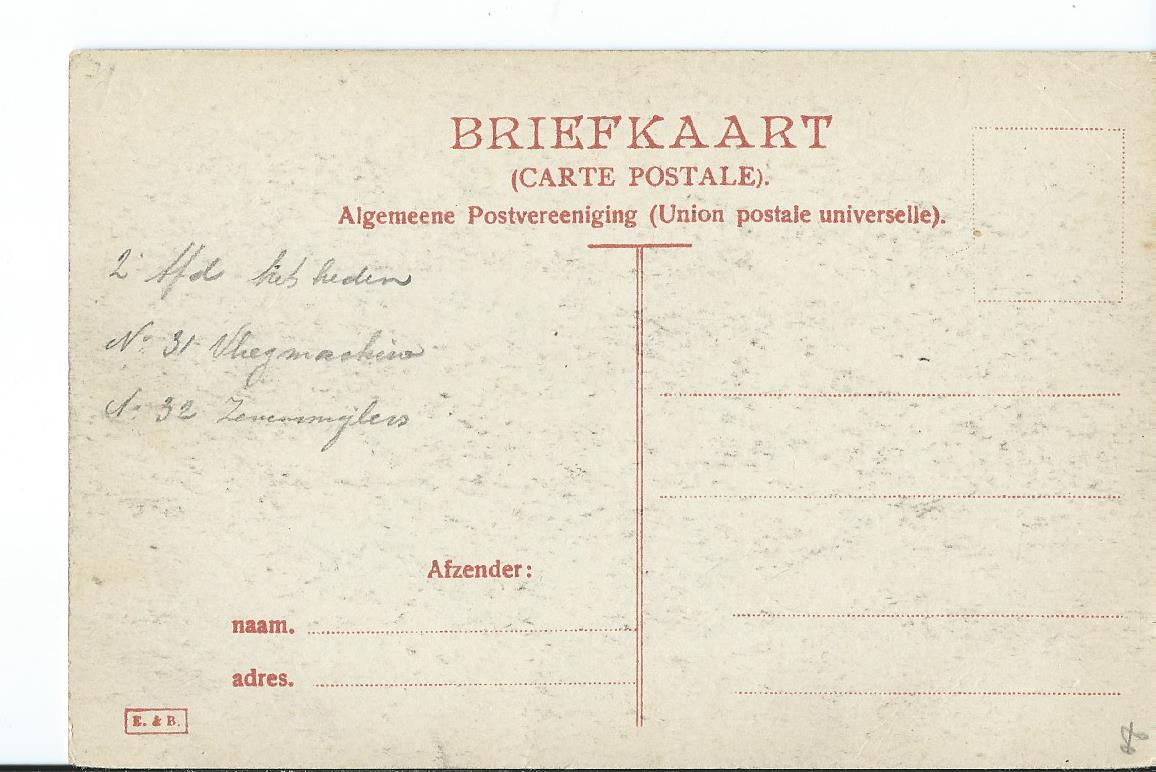 BRIEFKAART
(CARTE POSTALE).
Algemeene Postvereeniging (Union postale universelle).
2e Afd het heden
No 31 Vliegmachine
No 32 Zevenmijlers
Afzender:
naam.
adres.
E. & B.